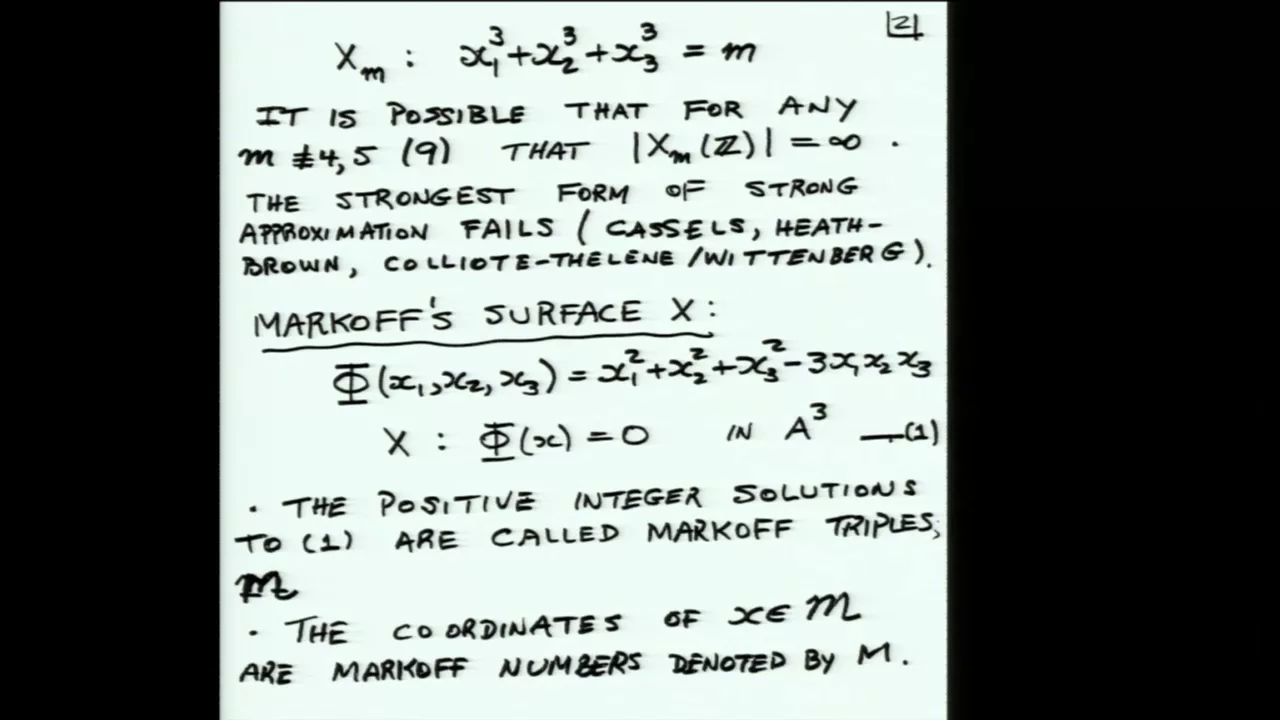 2
Xₘ : x₁³+x₂³+x₃³ = m
IT IS POSSIBLE THAT FOR ANY
m ≢ 4,5 (9) THAT |Xₘ(ℤ)| = ∞ .
THE STRONGEST FORM OF STRONG
APPROXIMATION FAILS (CASSELS, HEATH-
BROWN, COLLIOTE-THELENE/WITTENBERG).
MARKOFF'S SURFACE X:
Φ(x₁,x₂,x₃) = x₁²+x₂²+x₃²-3x₁x₂x₃
X : Φ(x) = 0 IN A³ —(1)
· THE POSITIVE INTEGER SOLUTIONS
TO (1) ARE CALLED MARKOFF TRIPLES;
𝓜
· THE COORDINATES OF x∈𝓜
ARE MARKOFF NUMBERS DENOTED BY M.